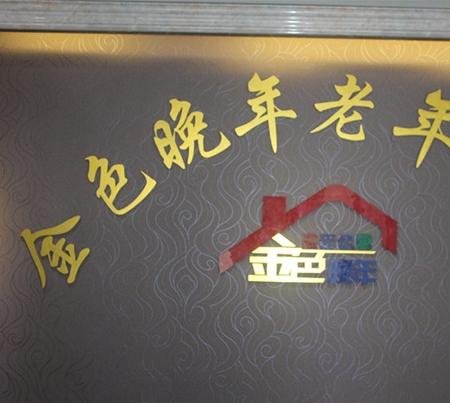 金色晚年老年
金色晚年